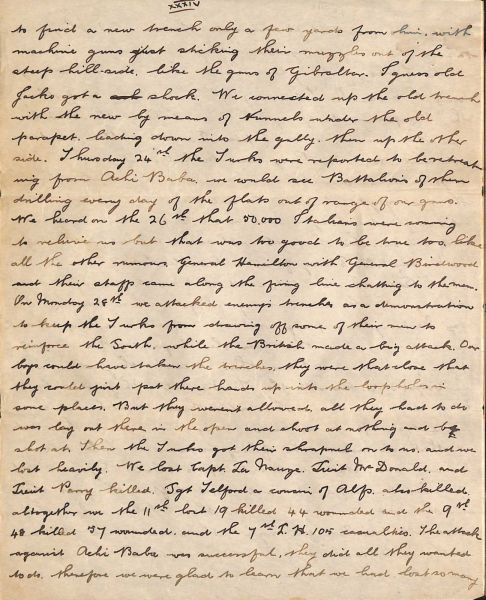 XXXIV
to find a new trench only a few yards from him, with
machine guns just sticking their muzzles out of the
steep hill-side, like the guns of Gibraltar. I guess old
Jacko got a shock. We connected up the old trench
with the new by means of tunnels under the old
parapet, leading down into the gully, then up the other
side. Thursday 24th the Turks were reported to be retreat
ing from Achi Baba, we could see Battalions of them
drilling every day of the flats out of range of our guns.
We heard on the 26th that 50,000 Italians were coming
to relieve us but that was too good to be true too, like
all the other rumours. General Hamilton with General Birdwood
and their staffs came along the firing line chatting to the men.
On Monday 28th we attacked enemys trenches as a demonstration
to keep the Turks from drawing off some of their men to
reinforce the South, while the British made a big attack. Our
boys could have taken the trenches, they were that close that
they could just put there hands up into the loopholes in
some places. But they werent allowed, all they had to do
was lay out there in the open and shoot at nothing and be
shot at. Then the Turks got their shrapnel on to us, and we
lost heavily. We lost Capt. La Nauze, Lieut McDonald, and
Lieut Parry killed. Sgt Telford a cousin of Alf's, also killed,
altogether we the 11th lost 19 killed 44 wounded and the 9th
48 killed 37 wounded, and the 7th L.H. 105 casualties. The attack
against Achi Baba was successful, they did all they wanted
to do, therefore we were glad to learn that we had lost so many